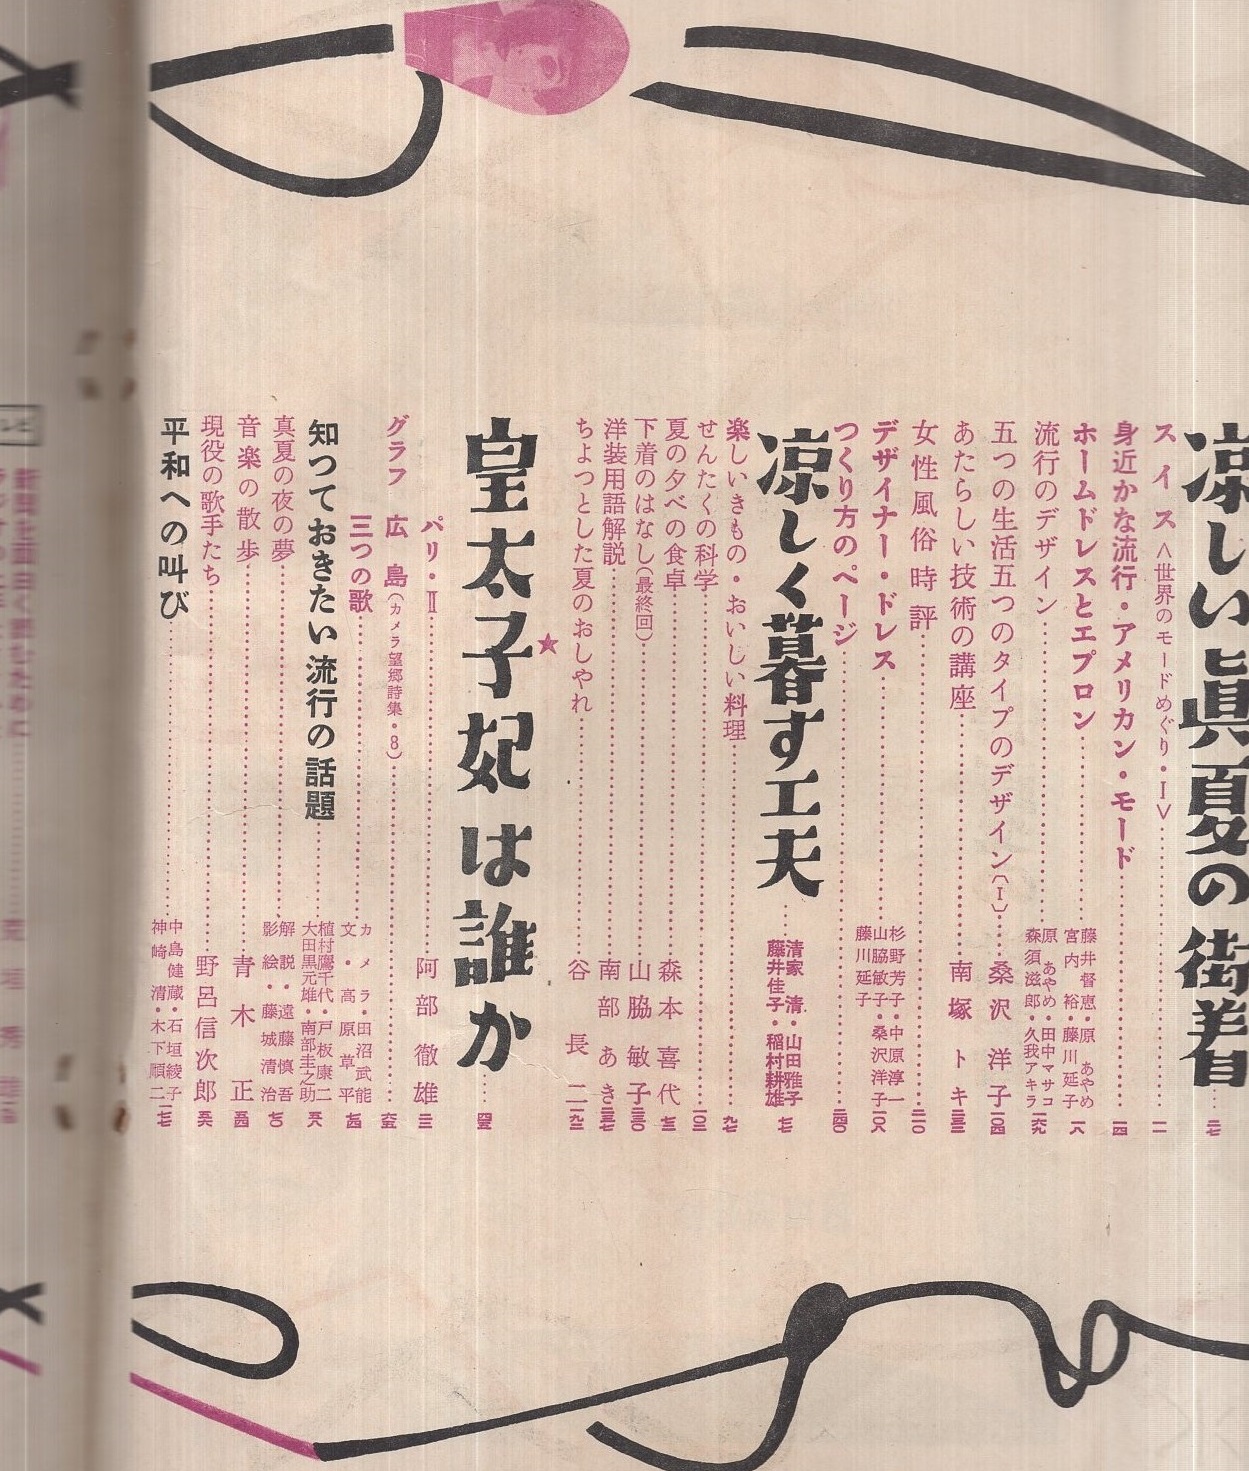 涼しい眞夏の街着
スイス＜世界のモードめぐり・Ⅰ＞ 一一
身近かな流行・アメリカン・モード 一四
ホームドレスとエプロン 藤井督恵・原あやめ 宮内裕・藤川延子 一八
流行のデザイン 原あやめ・田中マサコ 森須滋郎・久我アキラ 一六九
五つの生活五つのタイプのデザイン(Ⅰ) 桑沢洋子 一〇四
あたらしい技術の講座 南塚トキ
女性風俗時評 二一〇
デザイナー・ドレス 杉野芳子・中原淳一 山脇敏子・桑沢洋子 藤川延子 一〇八
つくり方のページ 二四〇
涼しく暮す工夫 清家清・山田雅子 藤井佳子・稲村耕雄 七七
楽しいきもの・おいしい料理 九七
せんたくの科学 一〇二
夏の夕べの食卓 森本喜代
下着のはなし(最終回) 山脇敏子
洋装用語解説 南部あき
ちよつとした夏のおしやれ 谷長二
★
皇太子妃は誰か
パリ・Ⅱ 阿部徹雄
グラフ 広島(カメラ望郷詩集・8)
三つの歌 カメラ・田沼武能 文・高原草平
知つておきたい流行の話題 植村鷹千代・戸板康二 大田黒元雄・南部圭之助
真夏の夜の夢 解説・遠藤慎吾 影絵・藤城清治
音楽の散歩 青木正
現役の歌手たち 野呂信次郎
平和への叫び 中島健蔵・石垣綾子 神崎清・木下順二